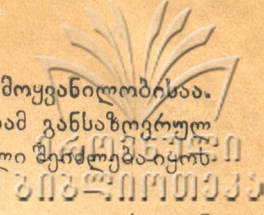 მოყვანილობისაა.
ამ განსაზღვრულ
ლი შეიძლება იყოს
ეროვნული
ბიბლიოთეკა